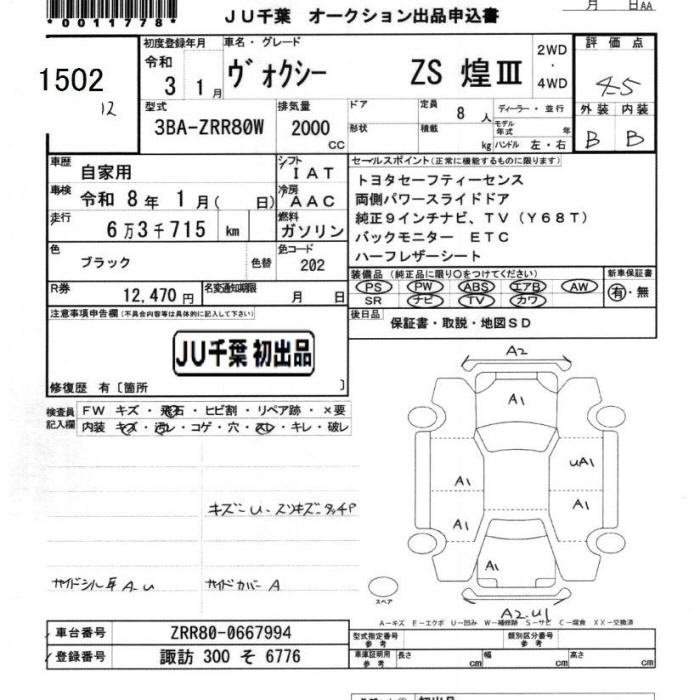 *0011778*
JU千葉 オークション出品申込書
月 日AA
1502
初度登録年月
令和
3 1月
車名・グレード
ヴォクシー ZS 煌Ⅲ
2WD
・
4WD
評価点
4.5
外装 内装
B B
型式
3BA-ZRR80W
排気量
2000
CC
ドア
形状
定員
8 人
積載
kg
ディーラー・並行
モデル
年式 年
ハンドル 左・右
車歴
自家用
シフト
IAT
車検 令和 8年 1月( 日)
冷房
AAC
走行
6万3千715 km
燃料
ガソリン
色
ブラック
色替
色コード
202
R券
12,470円
名変通知期限
月 日
セールスポイント(正常に機能するものに限ります)
トヨタセーフティーセンス
両側パワースライドドア
純正9インチナビ、TV(Y68T)
バックモニター ETC
ハーフレザーシート
装備品(純正品に限り○をつけてください)
PS PW ABS エアB AW
SR ナビ TV カワ
新車保証書
有・無
後日品
保証書・取説・地図SD
注意事項申告欄(不具合内容等は具体的に記入して下さい)
JU千葉 初出品
修復歴 有〔箇所 〕
検査員
記入欄
FW キズ・飛石・ヒビ割・リペア跡・×要
内装 キズ・汚レ・コゲ・穴・スレ・キレ・破レ
キズ~U-スリキズタッチP
サイドシル 耳 A-U
サイドカバー A
A2
A1
A1
UA1
A1
A1
A1
A2.U1
スペア
A-キズ E-エクボ U-凹み W-補修跡 S-サビ C-腐食 XX-交換済
車台番号
ZRR80-0667994
登録番号
諏訪 300 そ 6776
型式指定番号
参考
類別区分番号
参考
車庫証明用
参考
長さ cm
幅 cm
高さ cm
初出品